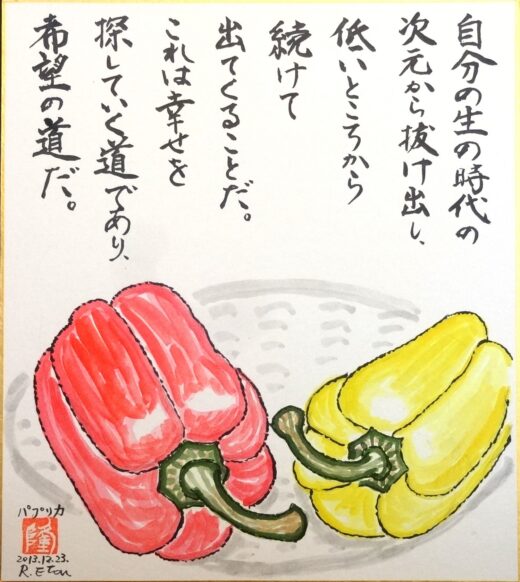 自分の生の時代の
次元から抜け出し、
低いところから
続けて
出てくることだ。
これは幸せを
探していく道であり、
希望の道だ。
パプリカ
隆
2013.12.23.
R. Eton